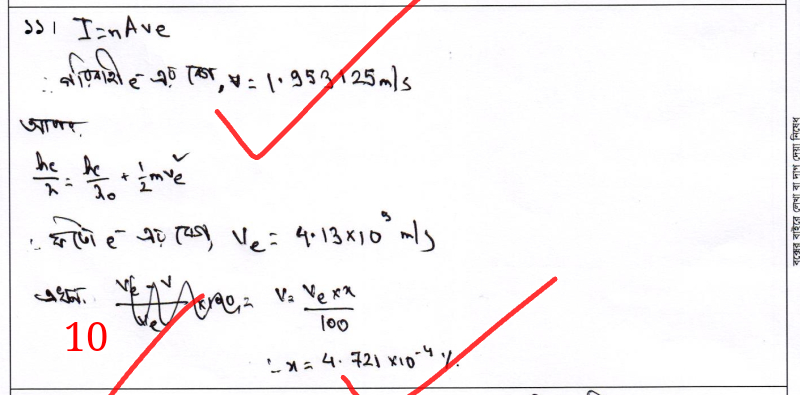 ১১। I=nAve
∴ পরিবাহী e⁻ এর বেগ, v = 1.953125 m/s
আবার,
hc/λ = hc/λ₀ + ½mvₑ²
∴ ফটো e⁻ এর বেগ, Vₑ = 4.13×10⁵ m/s
এখন, V = Vₑ×x/100
10
∴ x = 4.721×10⁻⁴ %.
বক্সের বাইরে লেখা বা দাগ দেয়া নিষেধ